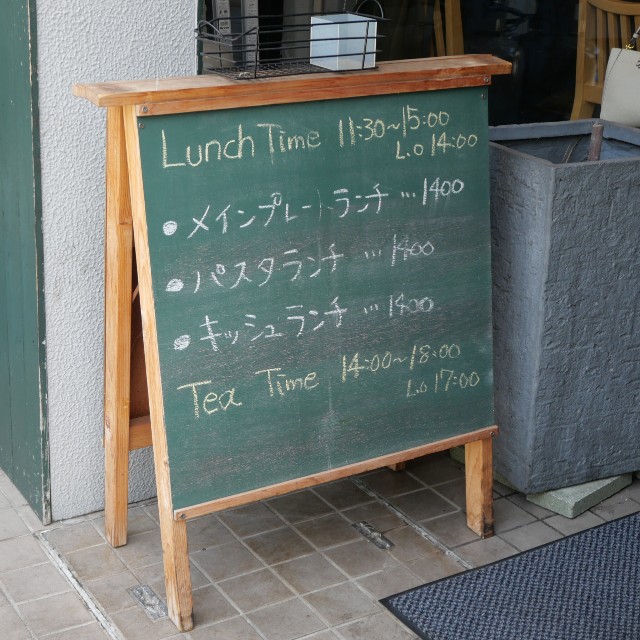 Lunch Time 11:30~15:00
L.O 14:00
● メインプレートランチ … 1400
● パスタランチ … 1400
● キッシュランチ … 1300
Tea Time 14:00~18:00
L.O 17:00